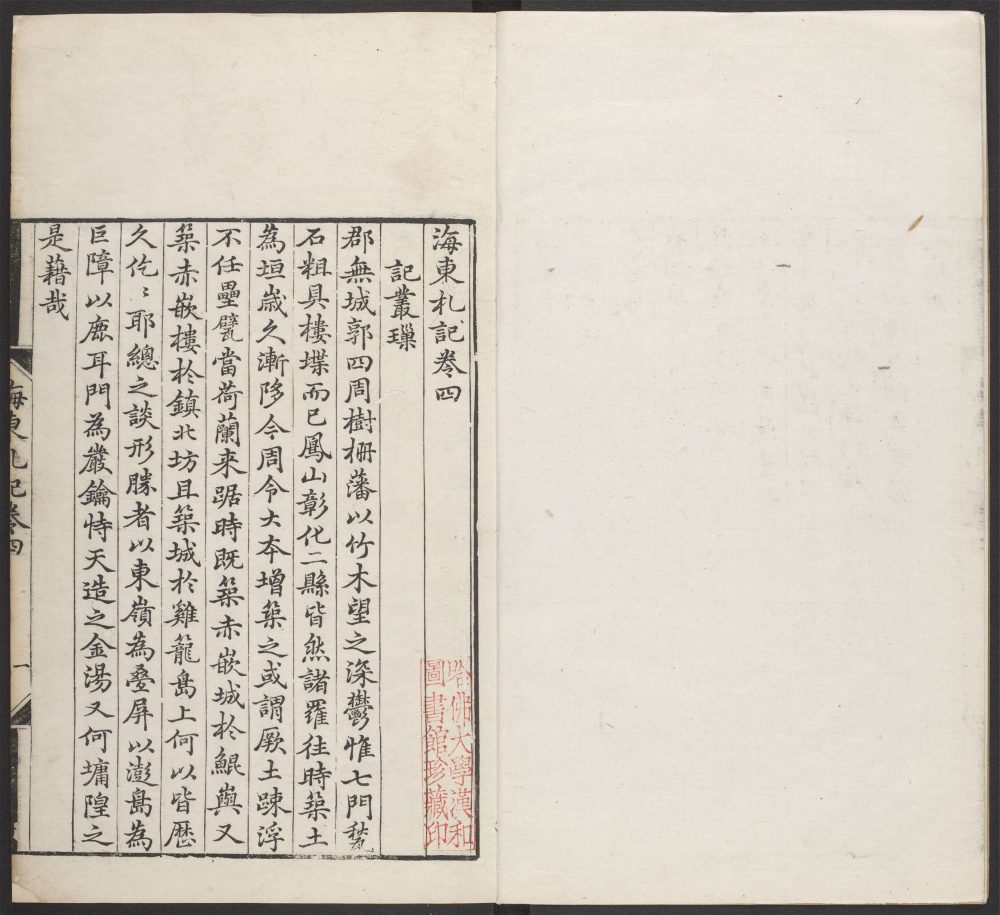 海東札記卷四
記叢璅
郡無城郭四周樹柵藩以竹木望之深鬱惟七門甃
石粗具樓堞而已鳳山彰化二縣皆然諸羅往時築土
為垣歲久漸陊今周令大本增築之或謂厥土疎浮
不任壘甓當荷蘭來踞時既築赤嵌城於鯤嶼又
築赤嵌樓於鎮北坊且築城於雞籠島上何以皆歷
久仡〻耶總之談形勝者以東嶺為疊屏以澎島為
巨障以鹿耳門為嚴鑰恃天造之金湯又何墉隍之
是藉哉
海東札記卷四
一
哈佛大學漢和
圖書館珍藏印